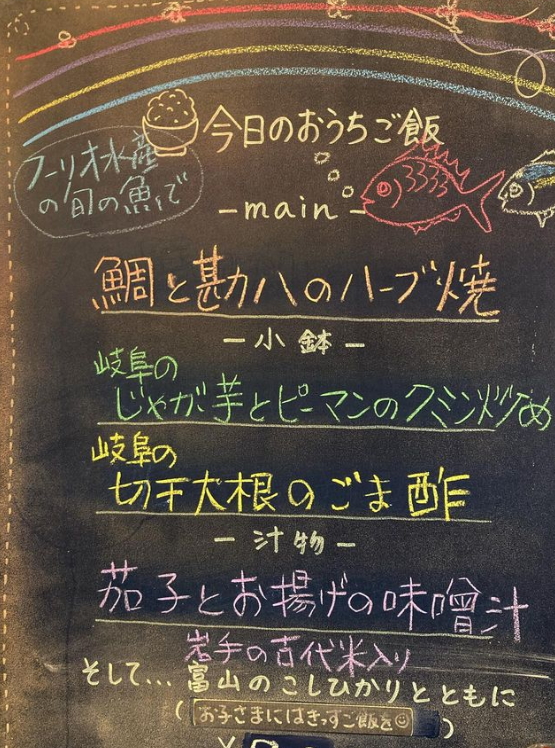 今日のおうちご飯
フーリオ水産
の旬の魚で
-main-
鯛と勘八のハーブ焼
-小鉢-
岐阜の
じゃが芋とピーマンのクミン炒め
岐阜の
切干大根のごま酢
-汁物-
茄子とお揚げの味噌汁
岩手の古代米入り
そして... 富山のこしひかりとともに
(お子さまにはきっずご飯を☺)